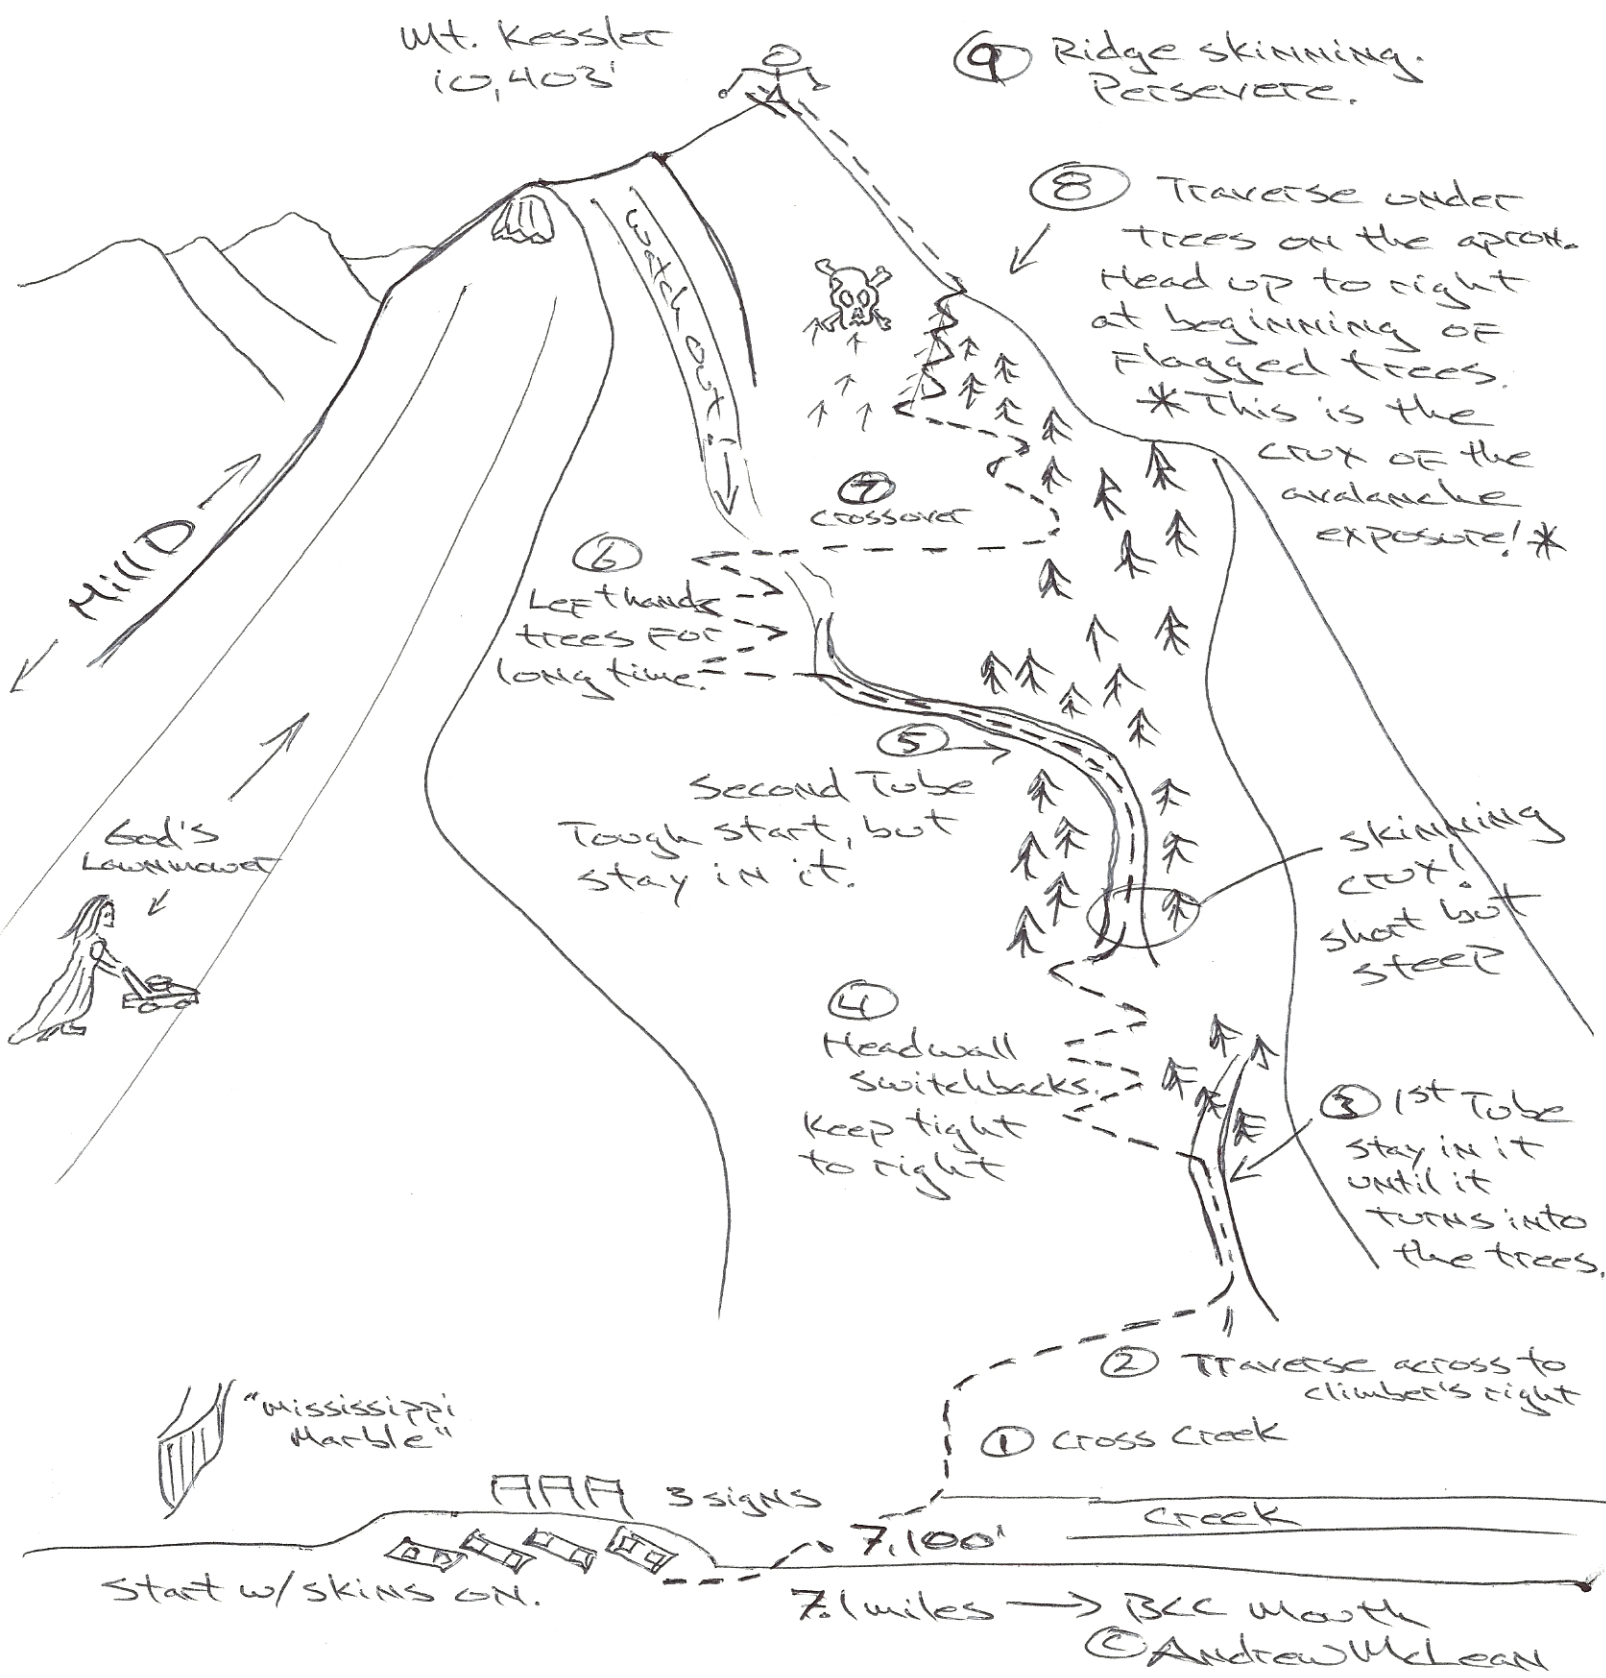 Mt. Kessler
10,403'
9 Ridge skinning.
Persevere.
8 Traverse under
trees on the apron.
Head up to right
at beginning of
Flagged trees.
*This is the
crux of the
avalanche
exposure!*
watch out!
7
crossover
6
Left hands
trees for
long time.
Mill D
5
Second Tube
Tough start, but
stay in it.
God's
Lawnmower
skinning
crux!
short but
steep
4
Headwall
switchbacks.
Keep tight
to right
3 1st Tube
stay in it
until it
turns into
the trees.
2 Traverse across to
climber's right
"Mississippi
Marble"
1 Cross Creek
3 signs
Creek
7,100'
Start w/ skins on.
7.1 miles → BCC Mouth
© Andrew McLean